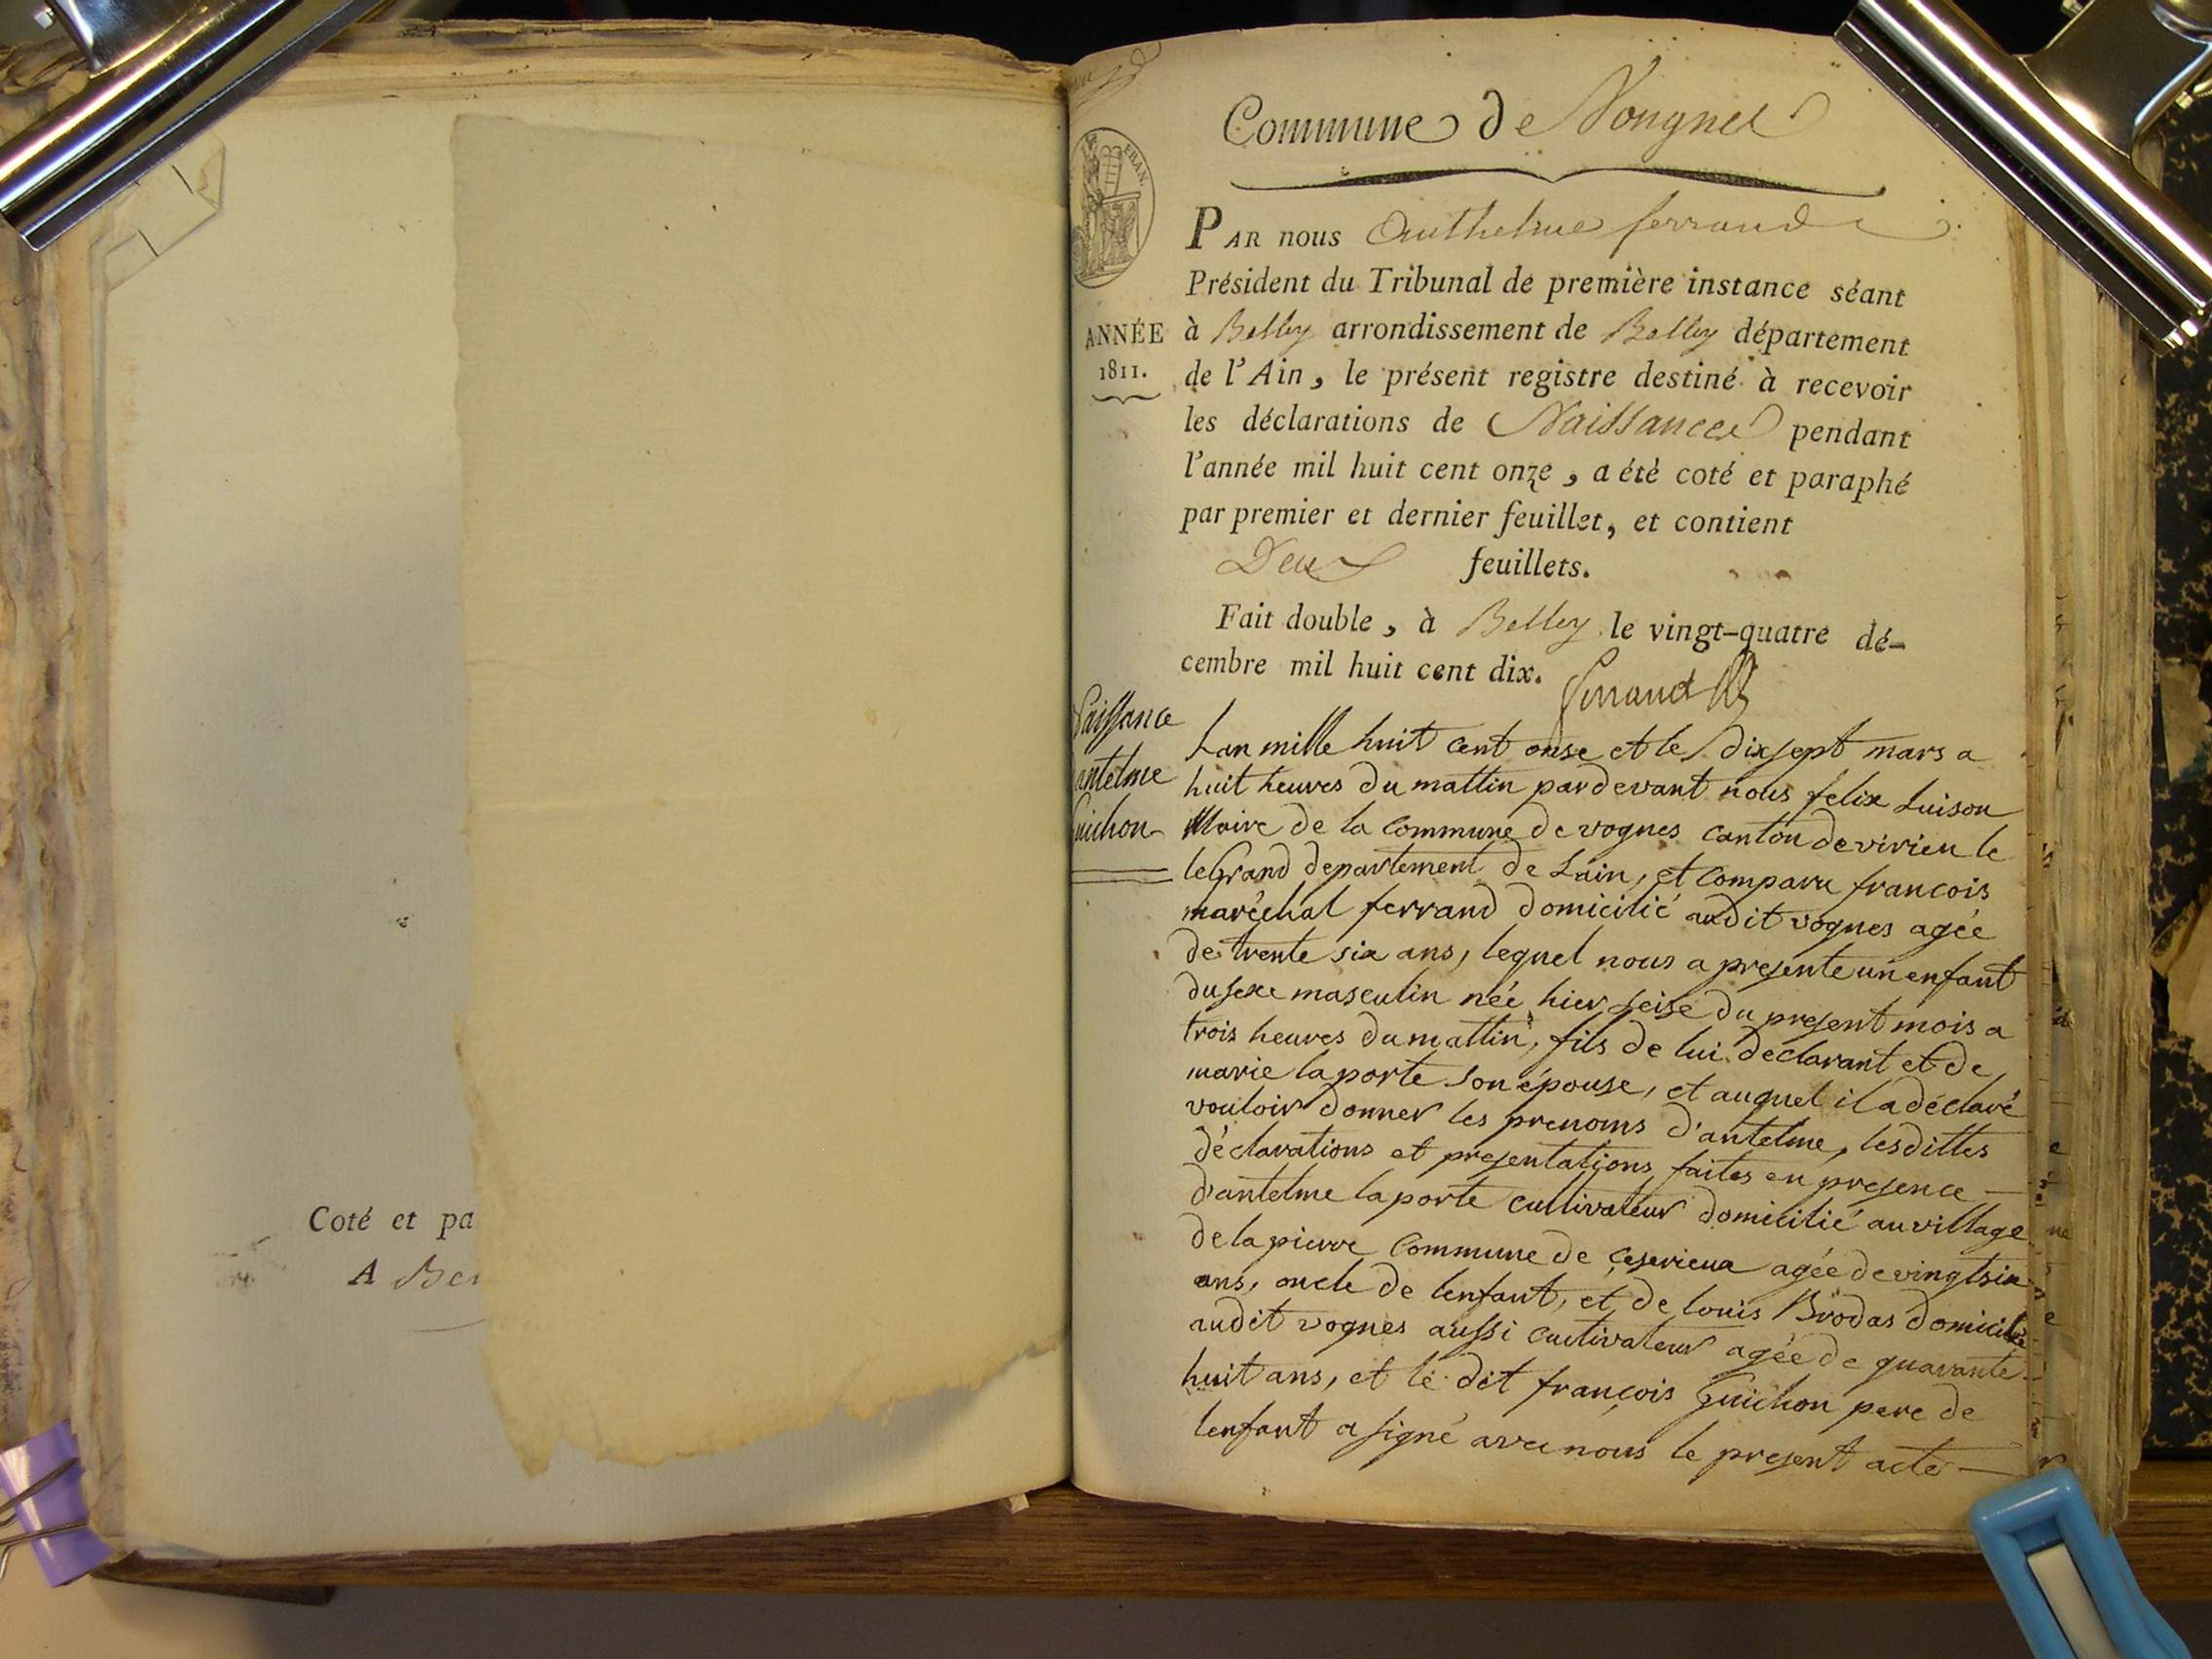 Coté et pa
A Be
Commune de Vongnes
FRAN.
PAR nous Anthelme ferrand
Président du Tribunal de première instance séant
ANNÉE
1811.
à Belley arrondissement de Belley département
de l'Ain, le présent registre destiné à recevoir
les déclarations de Naissances pendant
l'année mil huit cent onze, a été coté et paraphé
par premier et dernier feuillet, et contient
Deux feuillets.
Fait double, à Belley le vingt-quatre dé-
cembre mil huit cent dix.
ferrand
Naissance
d'antelme
Guichon
Lan mille huit cent onse et le dixsept mars a
huit heures du mattin pardevant nous félix Luison
Maire de la Commune de vognes canton de virieu le
le Grand departement de Lain, et comparu francois
maréchal ferrand domicilié audit vognes agée
de trente six ans, lequel nous a presente un enfant
du sexe masculin née hier seise du present mois a
trois heures du mattin, fils de lui déclarant et de
marie laporte son épouse, et auquel il a déclaré
vouloir donner les prenoms d'antelme, lesdittes
déclarations et presentations faites en presence
d'antelme laporte cultivateur domicilié au village
de la pierre Commune de çeserieux agée de vingt six
ans, oncle de lenfant, et de louis Brodas domicilié
audit vognes aussi cultivateur agée de quarante
huit ans, et le dit françois Guichon pere de
lenfant a signé avec nous le present acte